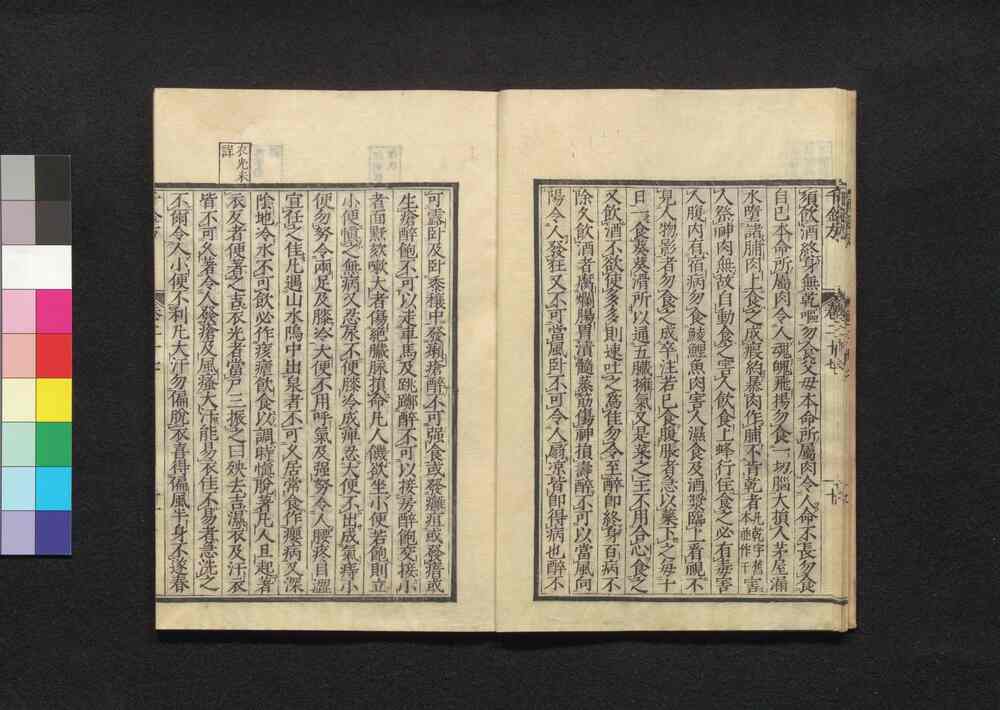 須飲酒終身無乾嘔勿食父母本命所屬肉令人命不長勿食
自己本命所屬肉令人魂魄飛揚勿食一切腦大損人茅屋漏
水墮諸脯肉上食之成瘕結暴肉作脯不肯乾者凡乾字舊本並作干害
人祭神肉無故自動食之害人飲食上蜂行住食之必有毒害
人腹內有宿病勿食鯪鯉魚肉害人濕食及酒漿臨上看視不
見人物影者勿食之成卒注若已食腹脹者急以藥下之每十
日一食葵葵滑所以通五臟擁氣又是菜之主不用合心食之
又飲酒不欲使多多則速吐之為佳勿令至醉即終身百病不
除久飲酒者腐爛腸胃漬髓蒸筋傷神損壽醉不可以當風向
陽令人發狂又不可當風臥不可令人扇涼皆即得病也醉不
可露臥及臥黍穰中發癩瘡醉不可强食或發癰疽或發瘖或
生瘡醉飽不可以走車馬及跳躑醉不可以接房醉飽交接小
者面䵟欬嗽大者傷絕臟脉損命凡人饑欲坐小便若飽則立
小便慎之無病又忍尿不便膝冷成痺忍大便不出成氣痔小
便勿努令兩足及膝冷大便不用呼氣及强努令人腰疼目澀
宜任之佳凡遇山水塢中出泉者不可久居常食作癭病又深
陰地冷水不可飲必作痎瘧飲食以調時慎脫著凡人旦起著
衣反者便著之吉衣光者當戶三振之曰殃去吉濕衣及汗衣
皆不可久著令人發瘡及風瘙大汗能易衣佳不易者急洗之
不爾令人小便不利凡大汗勿偏脫衣喜得偏風半身不遂春
衣光未詳